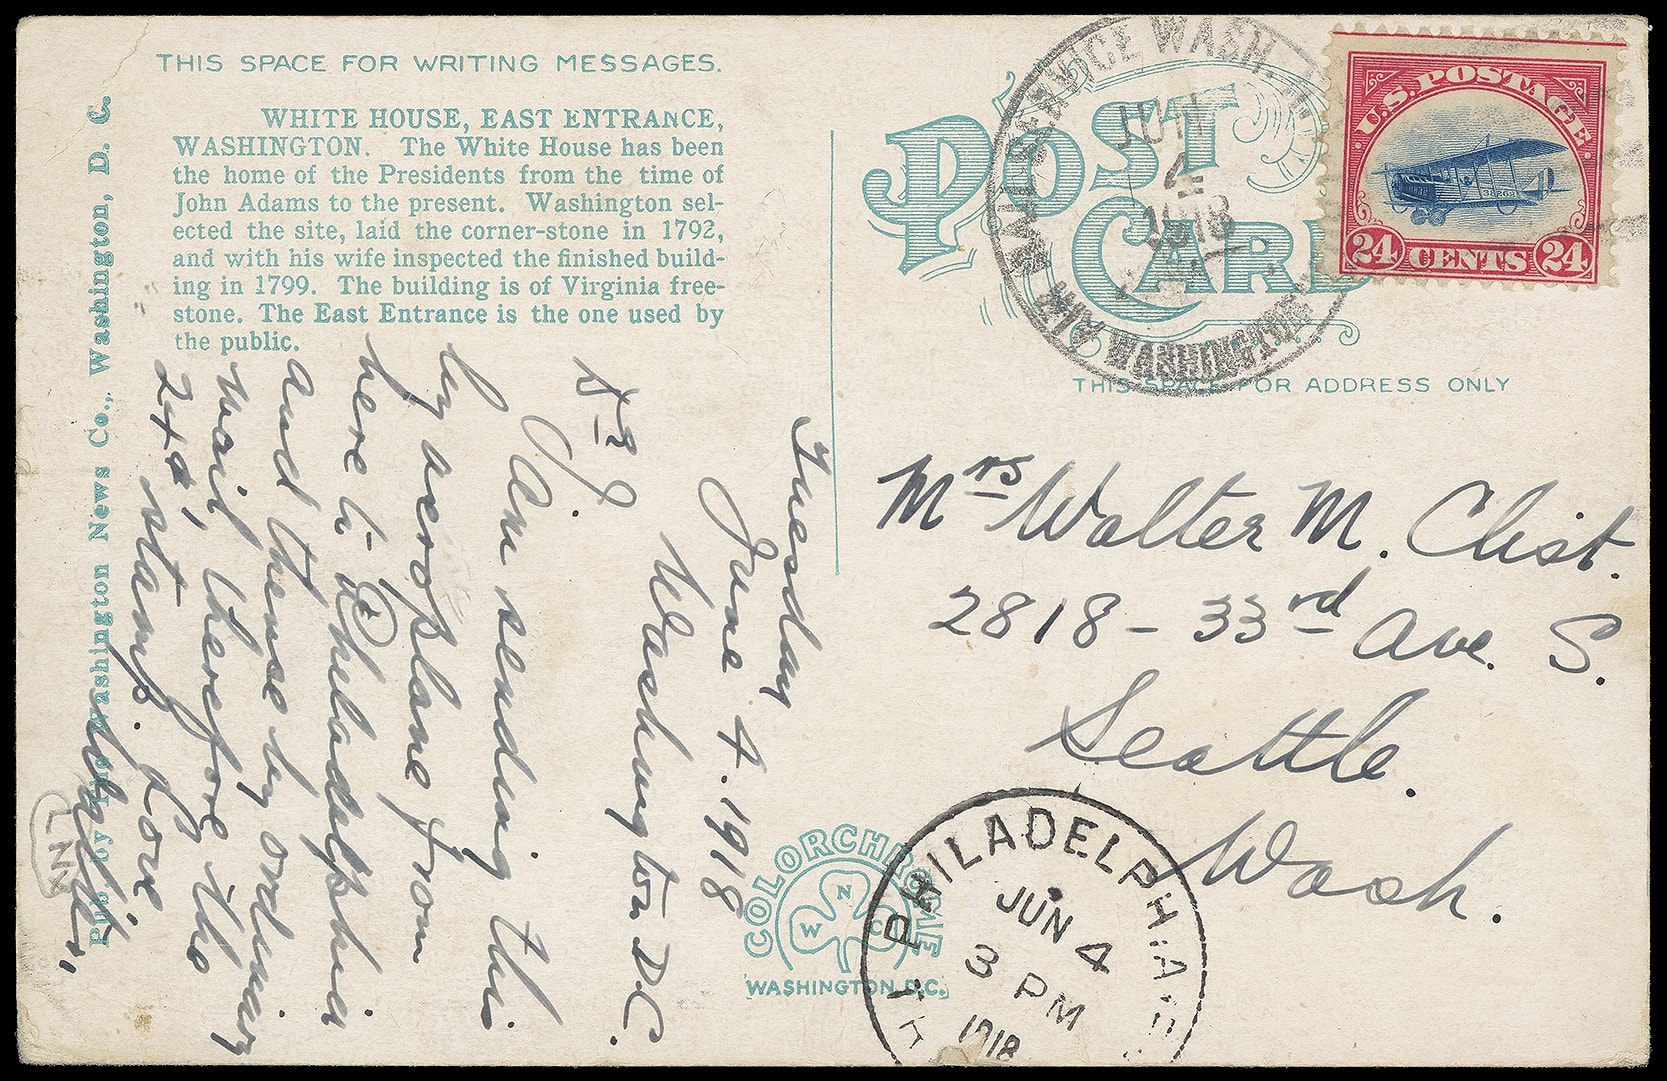 THIS SPACE FOR WRITING MESSAGES.
WHITE HOUSE, EAST ENTRANCE,
WASHINGTON. The White House has been
the home of the Presidents from the time of
John Adams to the present. Washington sel-
ected the site, laid the corner-stone in 1792,
and with his wife inspected the finished build-
ing in 1799. The building is of Virginia free-
stone. The East Entrance is the one used by
the public.
Pub. by The Washington News Co., Washington, D. C.
Tuesday
June 4. 1918
Washington D.C.
Am sending this
by aeroplane from
here to Philadelphia
and thense by ordinary
mail, therefore the
24¢ stamp. Love
POST CARD
THIS SPACE FOR ADDRESS ONLY
AIR MAIL SERVICE WASH.
JUN
4
1918
WASHINGTON
U.S. POSTAGE
38262
24 CENTS 24
Mrs Walter M. Clist.
2818 - 33rd Ave. S.
Seattle.
Wash.
COLORCHROME
W N C
WASHINGTON, D.C.
PHILADELPHIA
JUN 4
3 PM
1918